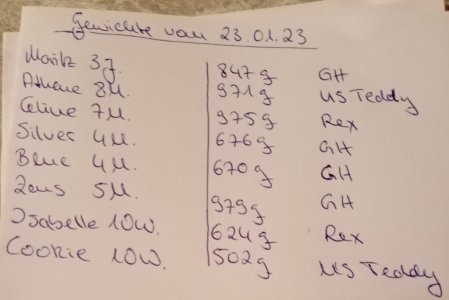 Gewichte vom 23.01.23
Moritz 3J. 847g GH
Athene 8M. 971g US Teddy
Celine 7M. 975g Rex
Silver 4M. 676g GH
Blue 4M. 670g GH
Zeus 5M. 979g GH
Isabelle 10W. 624g Rex
Cookie 10W. 502g US Teddy